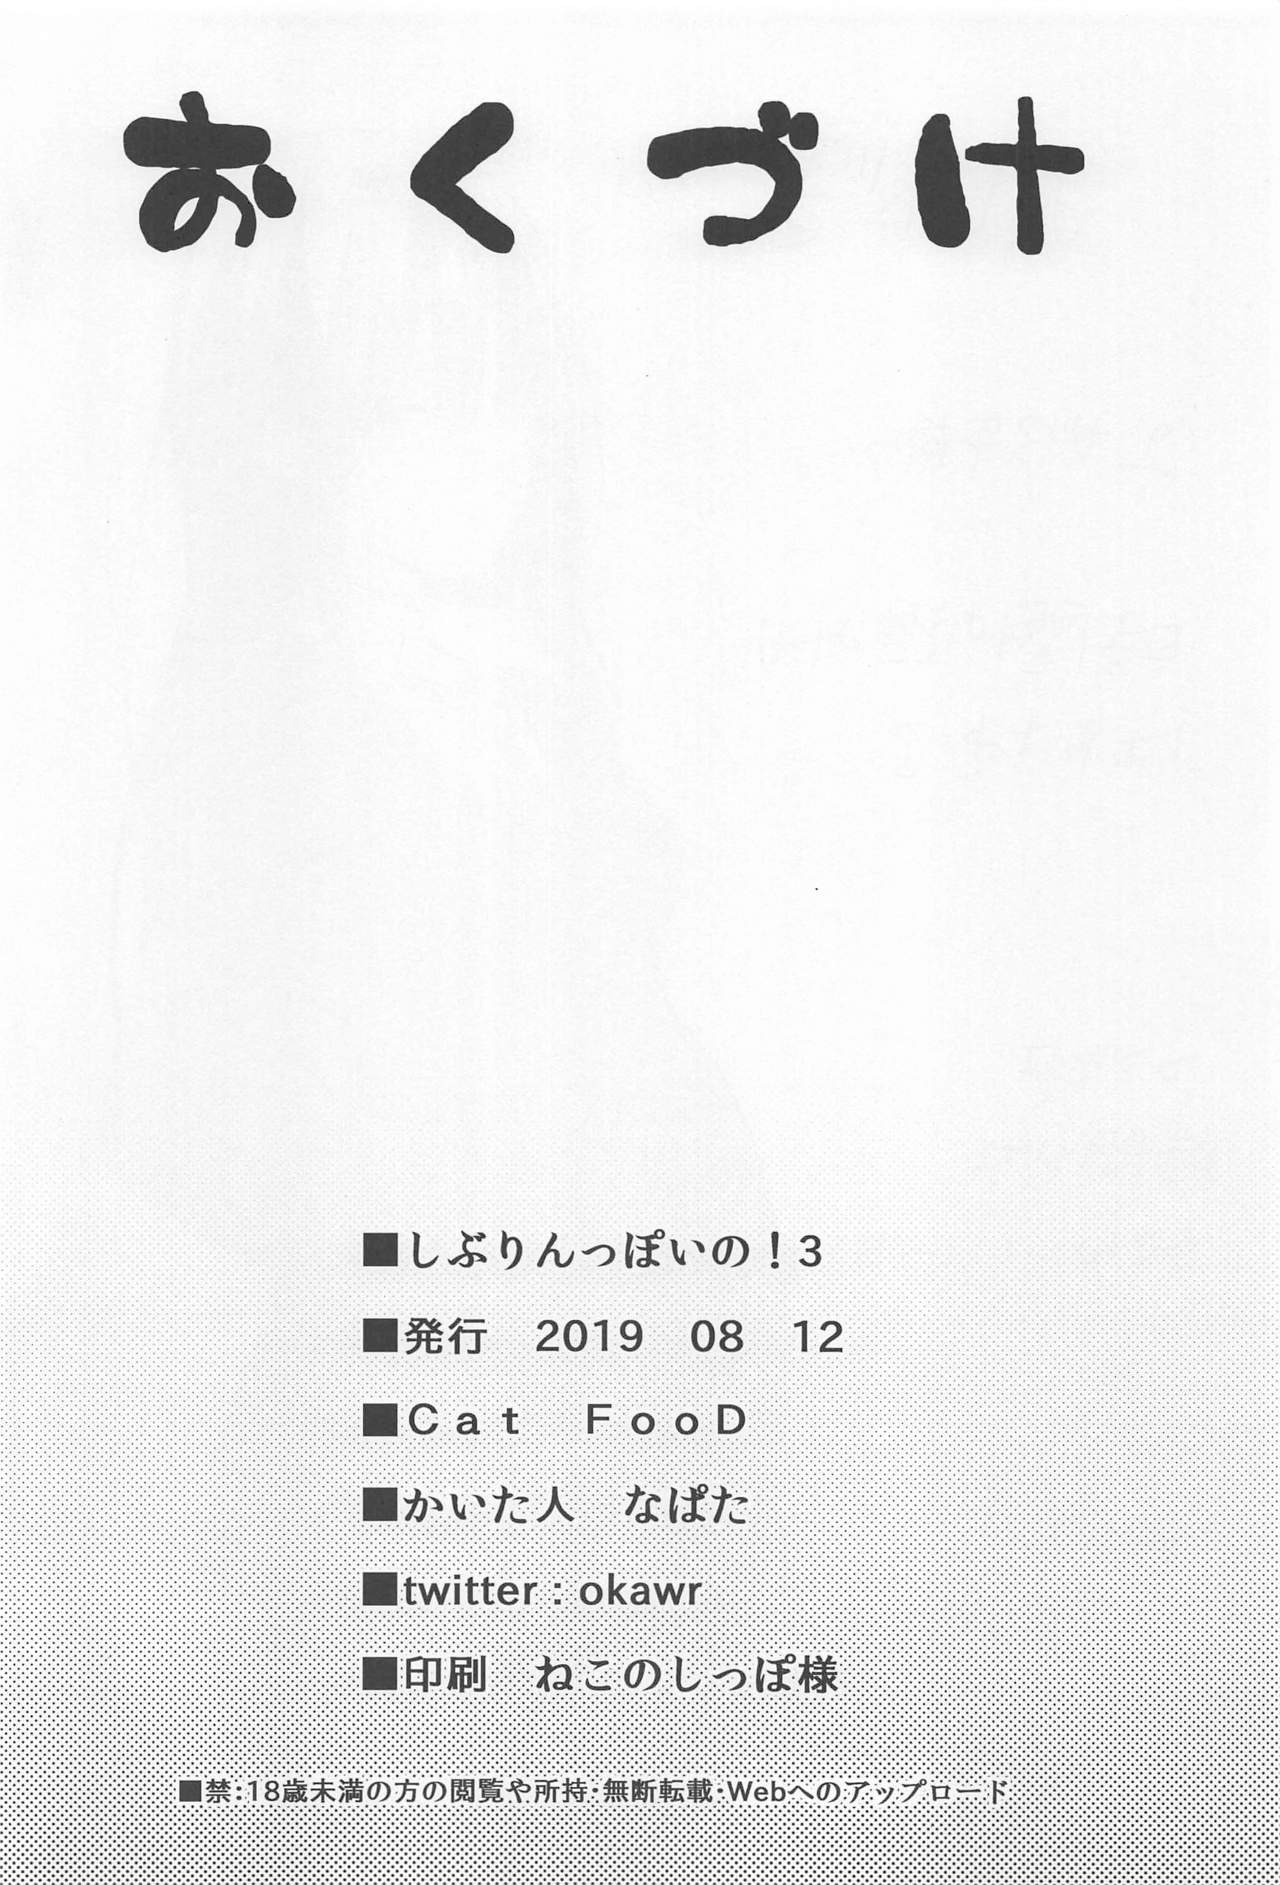 おくづけ
■しぶりんっぽいの！3
■発行　2019　08　12
■Ｃａｔ　ＦｏｏＤ
■かいた人　なぱた
■twitter : okawr
■印刷　ねこのしっぽ様
■禁:18歳未満の方の閲覧や所持･無断転載･Webへのアップロード